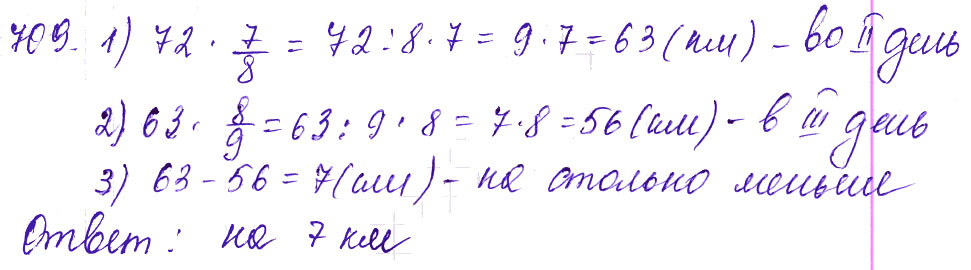 709. 1) 72 · 7/8 = 72 : 8 · 7 = 9 · 7 = 63 (км) – во II день
2) 63 · 8/9 = 63 : 9 · 8 = 7 · 8 = 56 (км) – в III день
3) 63 – 56 = 7 (км) – на столько меньше
Ответ: на 7 км